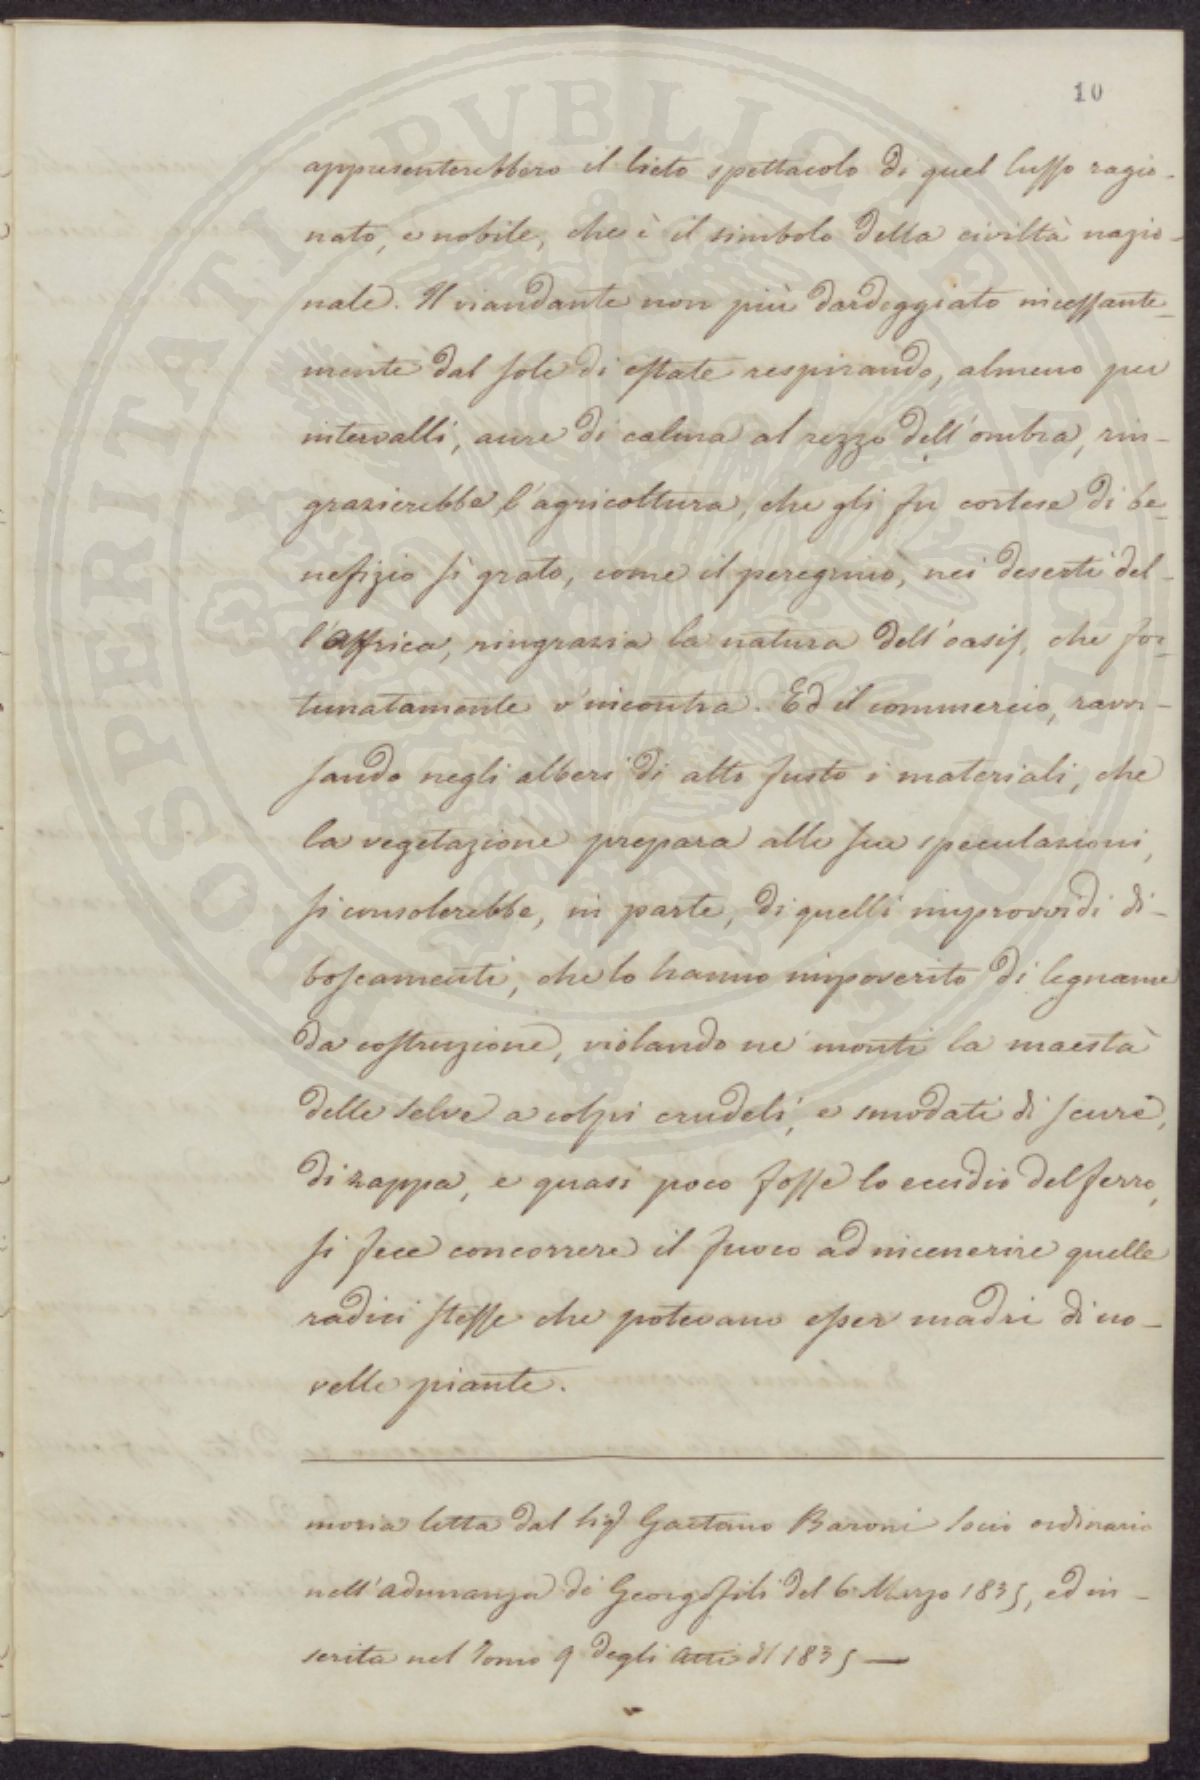 10
appresenterebbero il lieto spettacolo di quel lusso ragio-
nato, e nobile, che è il simbolo della civiltà nazio-
nale. Il viandante non più dardeggiato incessante-
mente dal sole di estate respirando, almeno per
intervalli, aure di calma al rezzo dell'ombra, rin-
grazierebbe l'agricoltura, che gli fu cortese di be-
nefizio sì grato, come il peregrino, nei deserti del-
l'Affrica, ringrazia la natura dell'oasis, che for-
tunatamente v'incontra. Ed il commercio, ravvi-
sando negli alberi di alto fusto i materiali, che
la vegetazione prepara alle sue speculazioni,
si consolerebbe, in parte, di quelli improvvidi di-
boscamenti, che lo hanno impoverito di legname
da costruzione, violando ne' monti la maestà
delle selve a colpi crudeli, e smodati di scure,
di zappa, e quasi poco fosse lo eccidio del ferro,
si fece concorrere il fuoco ad incenerire quelle
radici stesse che potevano esser madri di no-
velle piante.
moria letta dal Sig Gaetano Baroni socio ordinario
nell'adunanza de Georgofili del 6 Marzo 1835, ed in-
serita nel Tomo 9 degli Atti dl 1835 —
PROSPERITATI PUBLICAE AUGENDAE